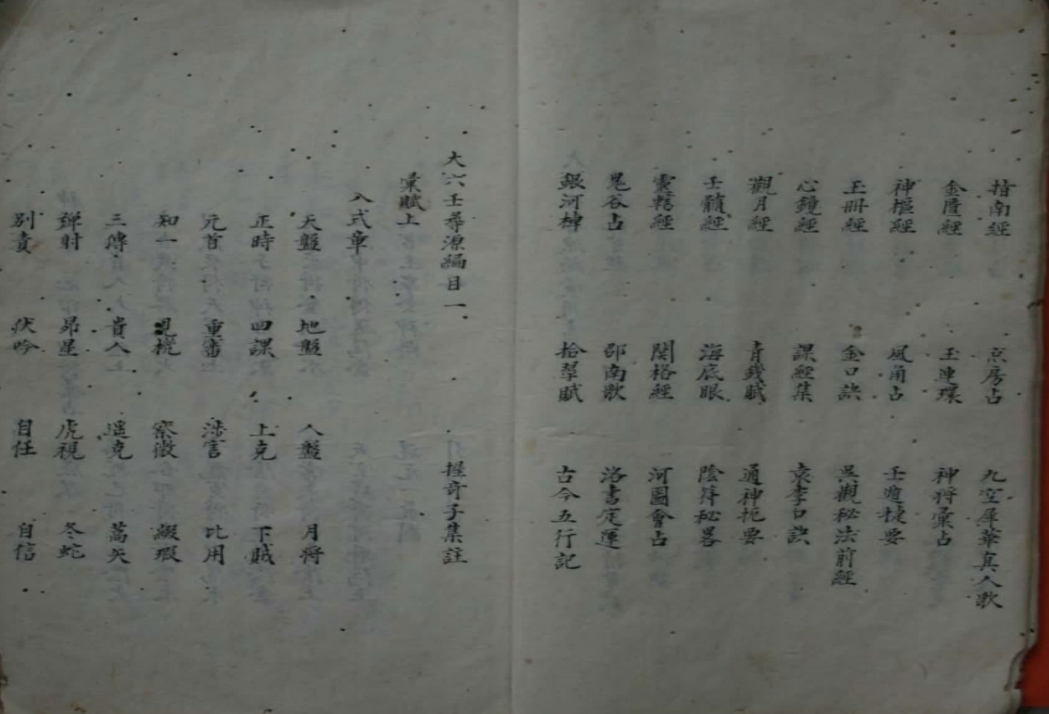 指南經 京房占 九空犀華真人歌
金匱經 玉連環 神將彙占
神樞經 風角占 壬遁樞要
玉冊經 金口訣 吳觀秘法前經
心鏡經 課經集 袁李口訣
觀月經 青錢賦 通神扼要
壬髓經 海底眼 陰符秘畧
靈轄經 關格經 河圖會占
鬼谷占 邵南歌 洛書定運
銀河棹 拾翠賦 古今五行記
大六壬尋源編目一 握奇子集註
彙賦上
入式章
天盤 地盤 人盤 月將
正時 四課 上克 下賊
元首 重審 涉害 比用
知一 見機 察微 綴瑕
三傳 貴人 遥克 蒿矢
彈射 昴星 虎視 冬蛇
別責 伏吟 自任 自信